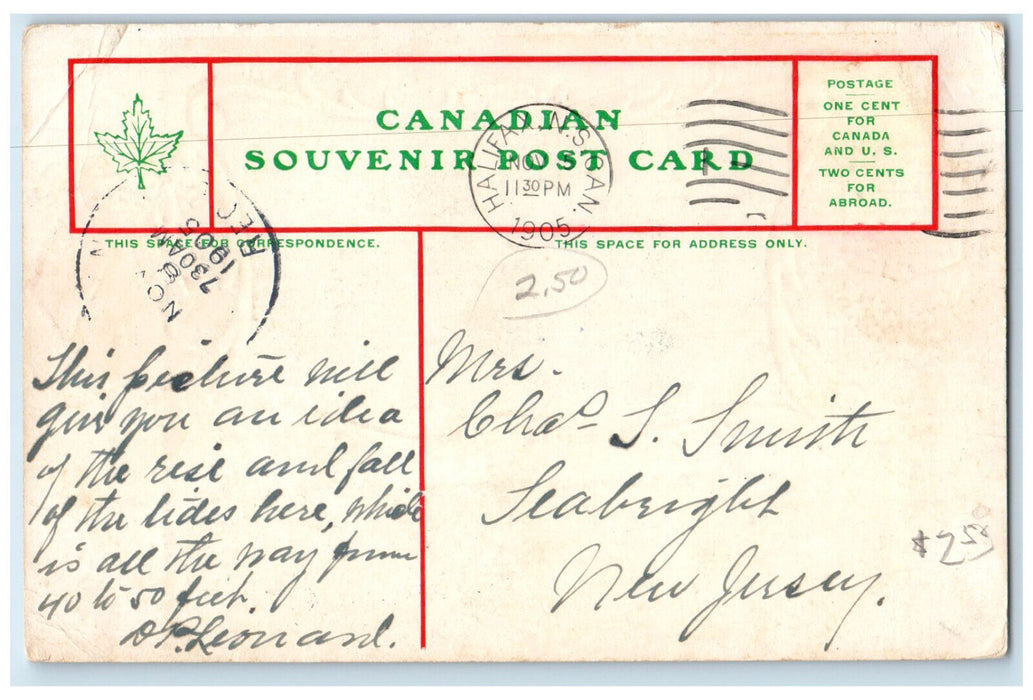 CANADIAN
SOUVENIR POST CARD
POSTAGE
ONE CENT
FOR
CANADA
AND U. S.
TWO CENTS
FOR
ABROAD.
HALIFAX, N.S. CAN.
NOV
11 30 PM
1905
THIS SPACE FOR CORRESPONDENCE.
THIS SPACE FOR ADDRESS ONLY.
REC
1905
7 30 AM
2,50
This picture will
give you an idea
of the rise and fall
of the tides here, which
is all the way from
40 to 50 feet.
D.P. Leonard.
Mrs.
Chas S. Smith
Seabright
New Jersey.
$2.50